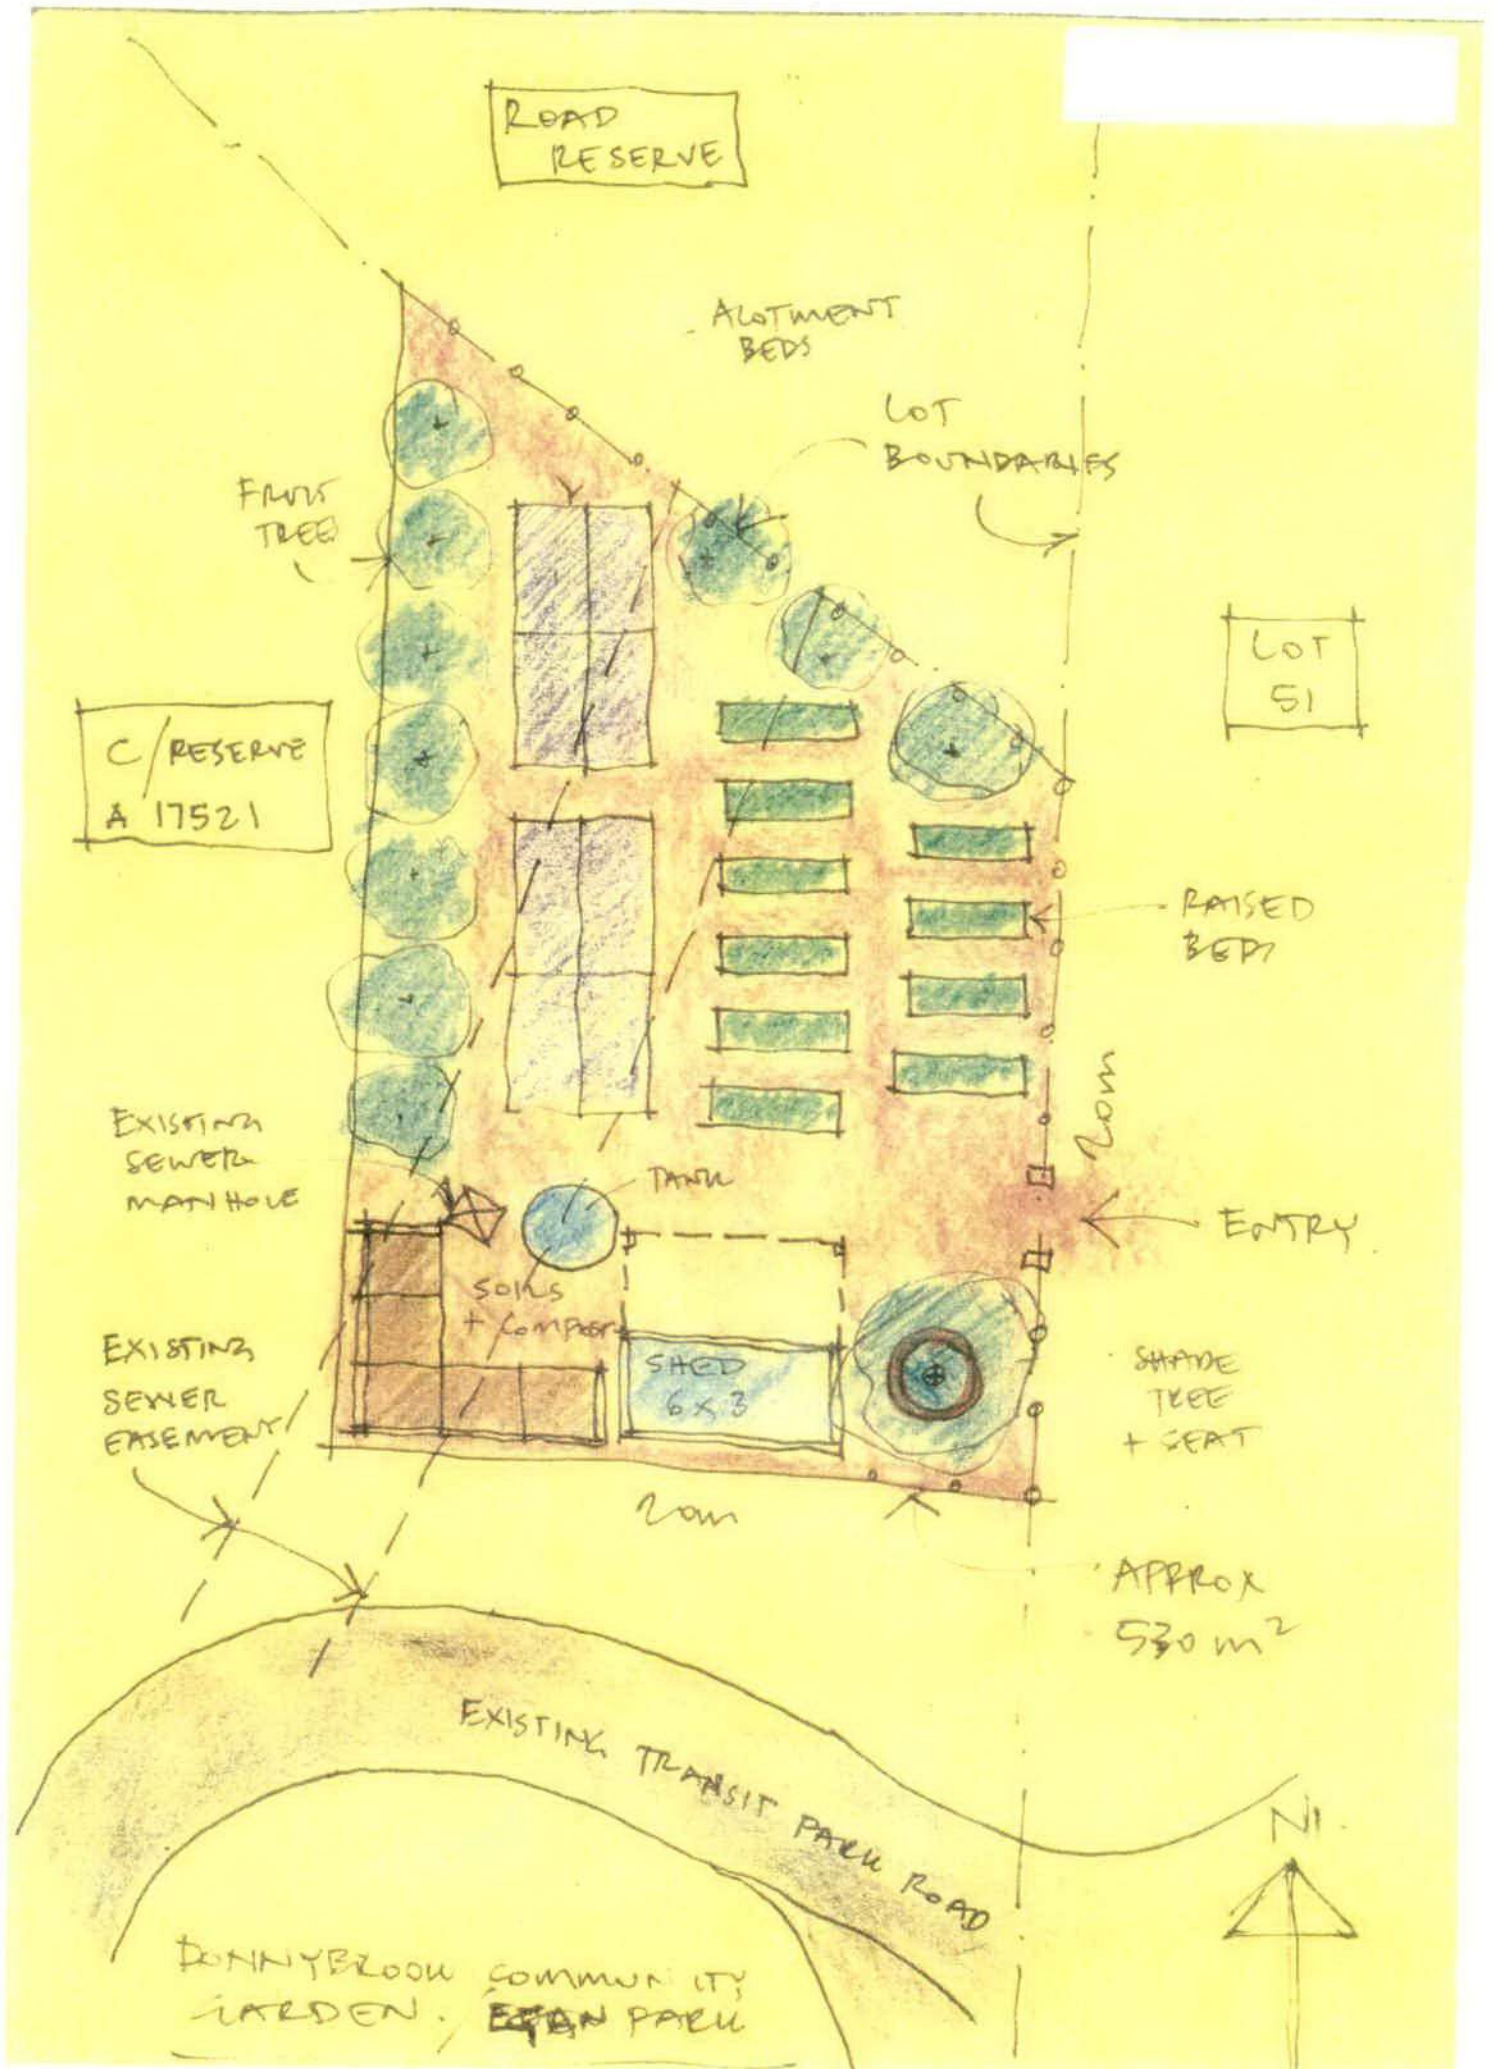 ROAD
RESERVE
ALOTMENT
BEDS
LOT
BOUNDARIES
FRUIT
TREE
LOT
51
C/RESERVE
A 17521
RAISED
BEDS
20m
EXISTING
SEWER
MANHOLE
TANK
ENTRY
SOILS
+ COMPOST
SHED
6 x 3
EXISTING
SEWER
EASEMENT
SHADE
TREE
+ SEAT
20m
APPROX
530 m²
EXISTING TRANSIT PARK ROAD
N
DONNYBROOK COMMUNITY
GARDEN. EGAN PARK